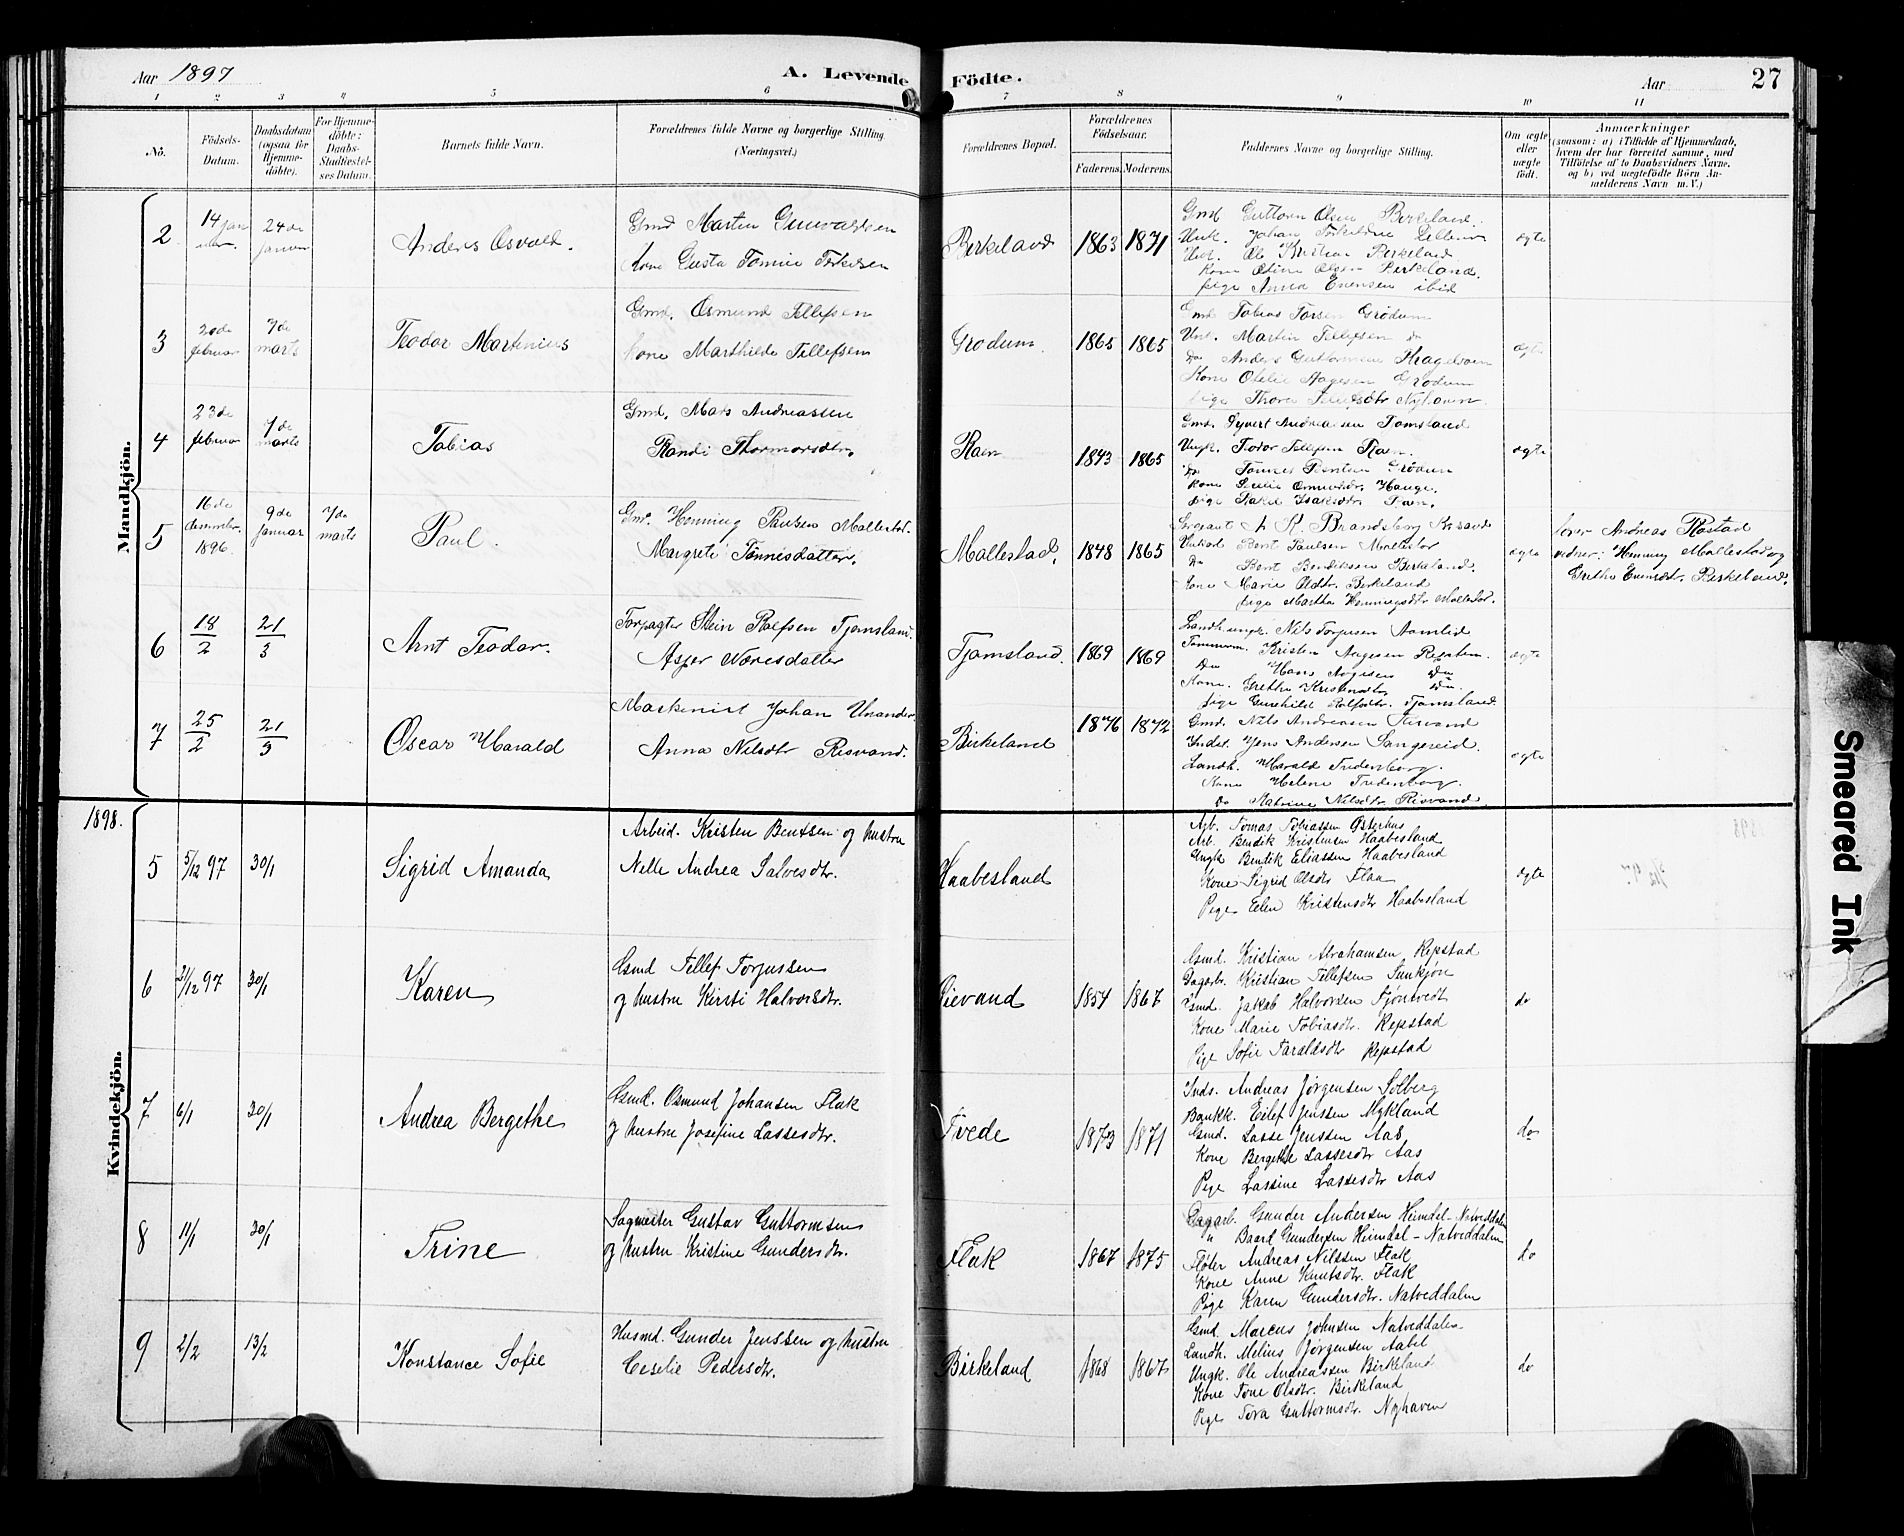 Aar 1897
A. Levende Födte.
Aar
27
1 2 3 4 5 6 7 8 9 10 11
No.
Födsels-Datum.
Daabsdatum (ogsaa for Hjemmedöbte).
For Hjemmedöbte: Daabs-Stadfæstelses Datum.
Barnets fulde Navn.
Forældrenes fulde Navne og borgerlige Stilling. (Næringsvei.)
Forældrenes Bopæl.
Forældrenes Födselsaar.
Faderens. Moderens.
Faddernes Navne og borgerlige Stilling.
Om ægte eller uægte födt.
Anmærkninger
(saasom: a) i Tilfælde af Hjemmedaab, hvem der har forrettet samme, med Tilföielse af to Daabsvidners Navne, og b) ved uægtefödte Börn Anmelderens Navn m. V.)
Mandkjön.
2
14 januar
24de januar
Anders Osvald.
Gmd Marten Gunvaldsen
Kone Gusta Tomine Terkelsen
Birkeland
1863 1871
Gmd Guttorm Olsen Birkeland.
Ole Kristian Birkeland
Kone Oline Olsen Birkeland.
pige Anna Evensen ibid
ægte
3
20de februar
7de marts
Teodor Martinius
Gmd. Osmund Tellefsen
Kone Marthilde Tellefsen
Grødum
1865 1865
Gmd Tobias Torsen Grødum
Unk. Martin Tellefsen do
Do Anders Guttormsen
Kone Otelie Aagesen Grødum
pige Thora Nyhaven
ægte
4
23de februar
7de marts
Tobias
Gmd. Mads Andreassen
Randi Thormorsdtr.
Raen
1843 1865
Gmd. Syvert Andreasen Tomsland
Ungk. Todor Tellefsen Raen.
Do Tønnes Bentsen Grødum
Kone Osmundsdtr. Hauge.
pige Rakel Isaksdtr. Raen.
ægte
5
16de desember 1896.
9de Januar
7de marts
Paul.
Gmd. Henning Paulsen Mollestad.
Margrete Tønnisdatter.
Mollestad.
1848 1865
Sergeant A. R. Brandsberg
Ungkarl Bent Paulsen Mollestad
Do Bent Bendiksen Birkeland.
Kone Marie Olsdtr. Birkeland
pige Martha Henningsdtr Mollestad.
ægte
Andreas Rostad
vidner: Henning Mollestad og
Grethe Evensdtr. Birkeland.
6
18/2
21/3
Arnt Teodor.
Forpagter Stein Rolfsen Tjomsland.
Asjer Noresdatter
Tjomsland.
1869 1869
Landh. ungk. Nils Torjusen Aamlid
Tømmerm. Kristen Aagesen Repstem.
Do Hans Aagesen Do
Kone. Grethe Kristensdtr Do.
pige Gunhild Rolfsdtr. Tjomsland
ægte
7
25/2
21/3
Oscar Harald
Maskenist Johan Unander.
Anna Nilsdtr Risvand.
Birkeland
1876 1872
Gmd. Nils Andreasen Risvand
Indst. Jens Andersen Sangereid.
Landh. Harald Fredenborg.
Kone Helene Fredenborg.
Do Katrine Nilsdtr Risvand.
ægte
1898.
Kvindekjön.
5
5/12 97
30/1
Sigrid Amanda
Arbeid. Kristen Bentsen og hustru
Nelle Andrea Salvesdtr.
Haabesland
Arb. Tomas Tobiassen Østerhus
Arb. Bendik Kristensen Haabesland
Ungk Bentik Eliassen Haabesland
Kone Sigrid Olsdtr Flaa
Pige Elen Kristensdtr Haabesland
ægte
6
21/12 97
30/1
Karen
Gmd Tellef Torjussen
og hustru Kirsti Halvorsdtr.
Lievand
1854 1867
Gmd. Kristian Abrahamsen Repstad
Dagarb. Kristian Tellefsen
Gmd. Jakob Halvorsen Tjøntvedt
Kone Marie Tobiasdtr. Repstad
Pige Sofie Taraldsdtr Repstad
do
7
6/1
30/1
Andrea Bergethe
Gmd. Osmund Johansen Flak
og hustru Josefine Lassesdtr.
Tvede
1873 1871
Inds. Andreas Jørgensen Solberg
Eilef Jenssen Mykland
Gmd. Lasse Jenssen Aas
Kone Bergethe Lassesdtr Aas
Pige Lassine Lassesdtr Aas
do
8
11/1
30/1
Trine
Sagmester Gustav Guttormsen
og hustru Kristine Gundersdtr.
Flak
1867 1875
Dagarb. Gunder Andersen Heimdal - Natveddalen
" Baard Gundersen Heimdal - Natveddalen
Fløter Andreas Nilssen Flak
Kone Anne Knutsdtr. Flak
Pige Karen Gundersdtr. Natveddalen
do
9
2/2
13/2
Konstance Sofie
Husmd. Gunder Jenssen og hustru
Ceselie Pedersdtr.
Birkeland
1868 1867
Gmd. Marcus Johnsen Natveddalen
Landh. Melius Jørgensen Aabel
Ungk. Ole Andreassen Birkeland
Kone Tone Olsdtr. Birkeland
Pige Tora Guttormsdtr. Nyhaven
do
Smeared Ink